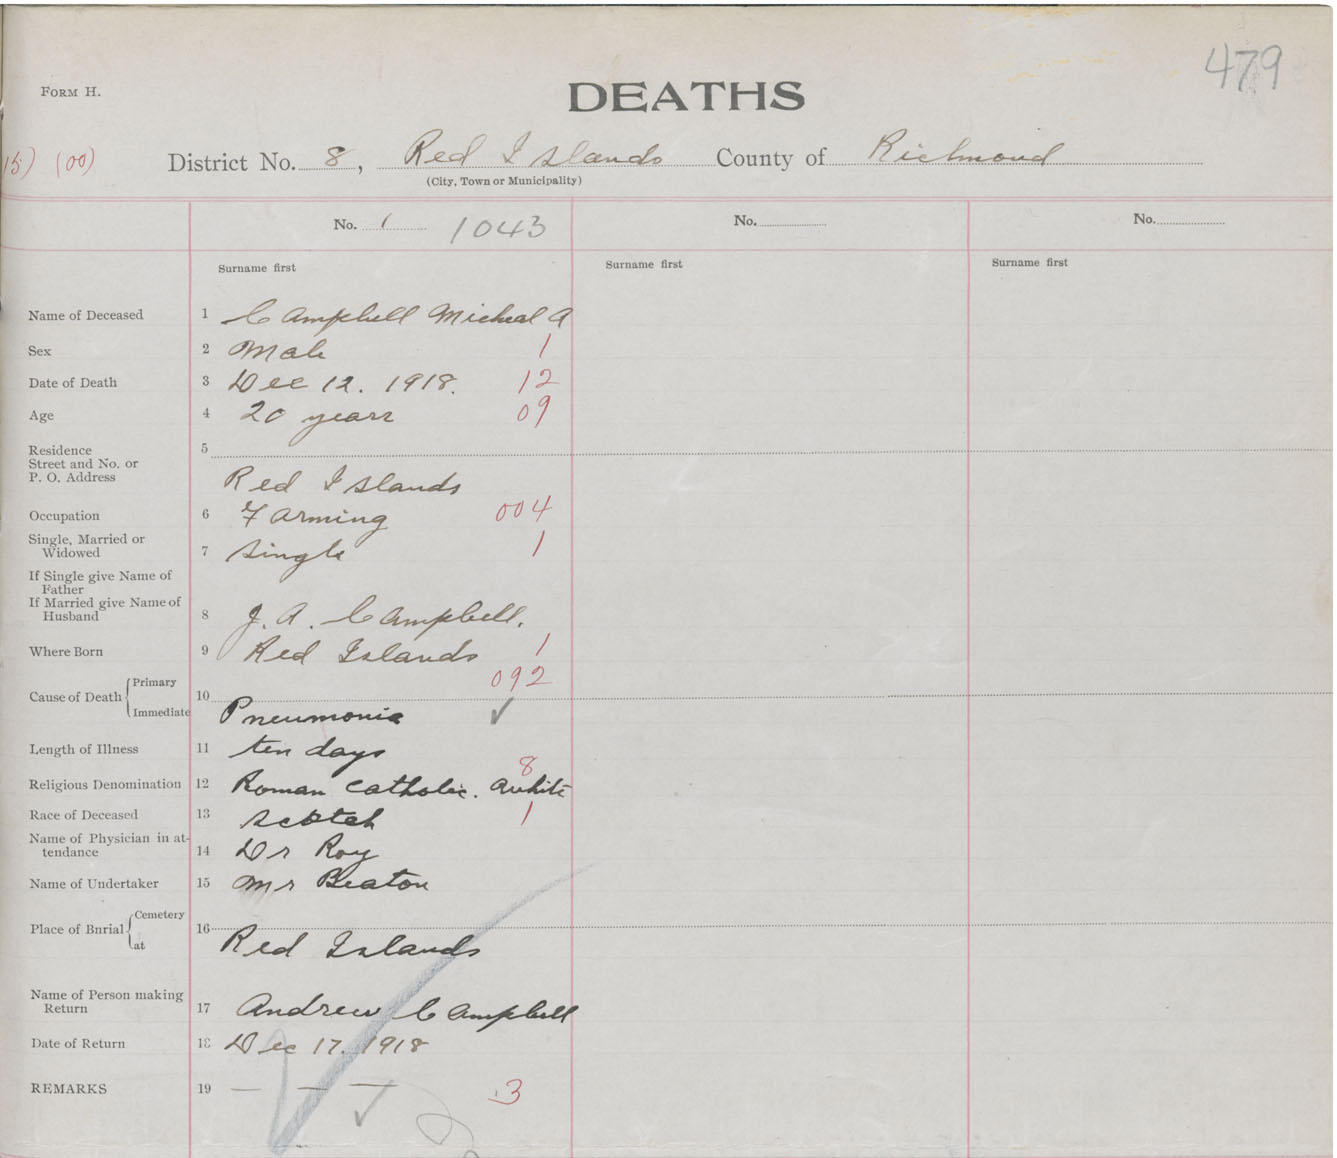 479
FORM H.
DEATHS
15) (00)
District No. 8, Red Islands County of Richmond
(City, Town or Municipality)
No. 1 1043 No. No.
Surname first Surname first Surname first
Name of Deceased 1 Campbell Micheal A
Sex 2 Male 1
Date of Death 3 Dec 12. 1918. 12
Age 4 20 years 09
Residence 5
Street and No. or
P. O. Address
Red Islands
Occupation 6 Farming 004
Single, Married or
Widowed 7 Single 1
If Single give Name of
Father
If Married give Name of
Husband 8 J. A. Campbell.
Where Born 9 Red Islands 1
092
Cause of Death Primary 10
Immediate Pneumonia ✓
Length of Illness 11 ten days
8
Religious Denomination 12 Roman Catholic. white
Race of Deceased 13 Scotch 1
Name of Physician in at-
tendance 14 Dr Roy
Name of Undertaker 15 Mr Beaton
Place of Burial Cemetery 16
at Red Islands
Name of Person making
Return 17 Andrew Campbell
Date of Return 18 Dec 17. 1918
REMARKS 19 — — — 3